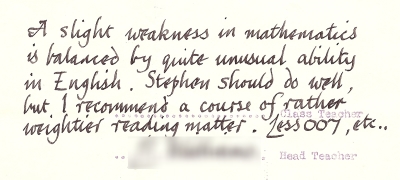 A slight weakness in mathematics
is balanced by quite unusual ability
in English. Stephen should do well,
but I recommend a course of rather
Class Teacher
weightier reading matter. Less 007, etc..
Head Teacher